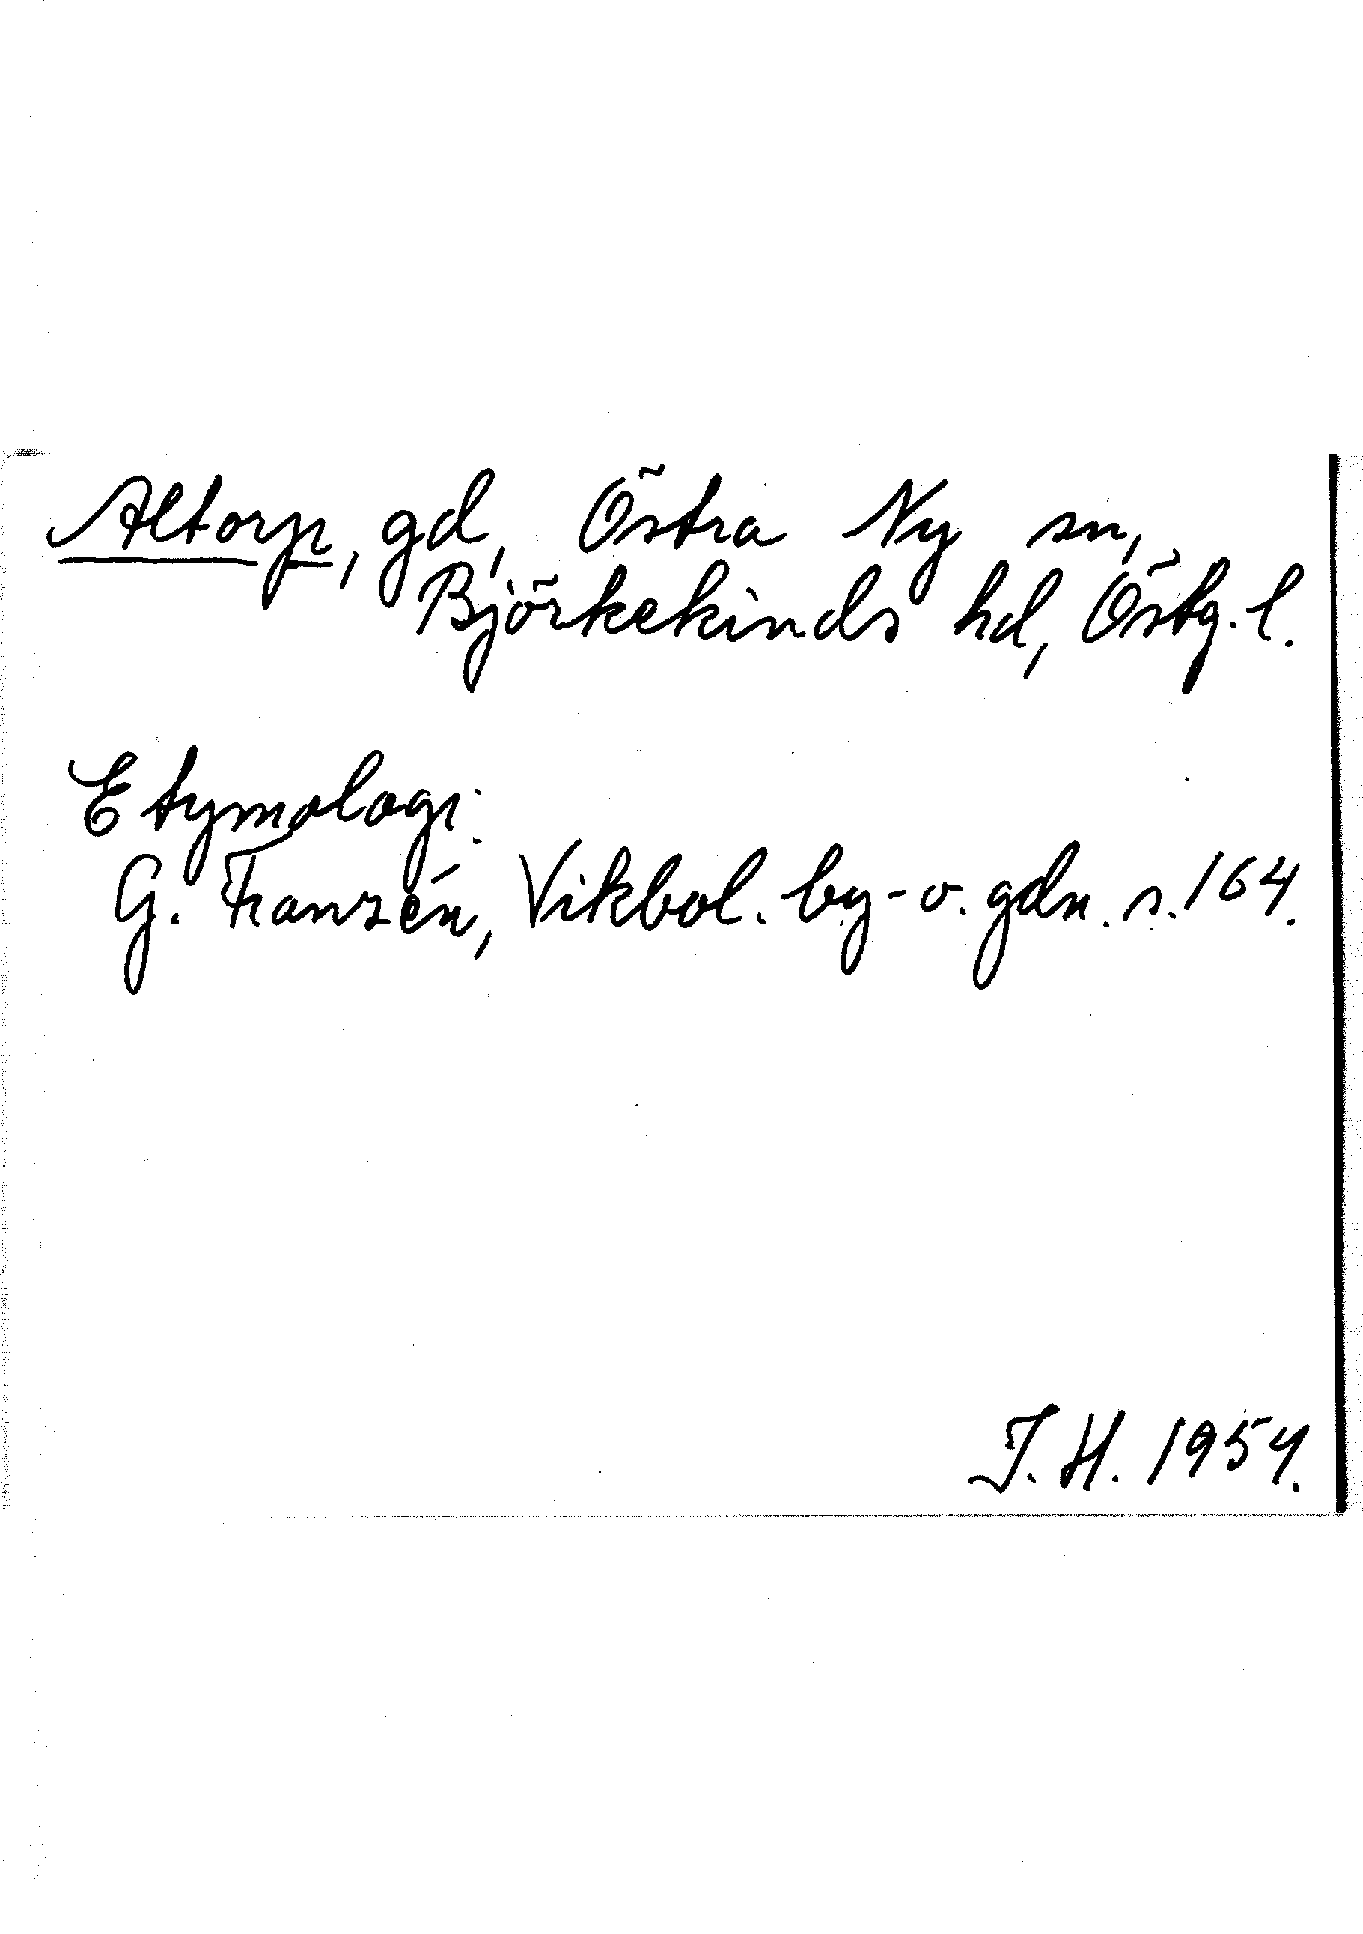 Altorp, gd, Östra Ny sn,
Björkekinds hd, Östg. l.
Etymologi:
G. Franzén, Vikbol. by- o. gdn. s. 164.
J. H. 1954.